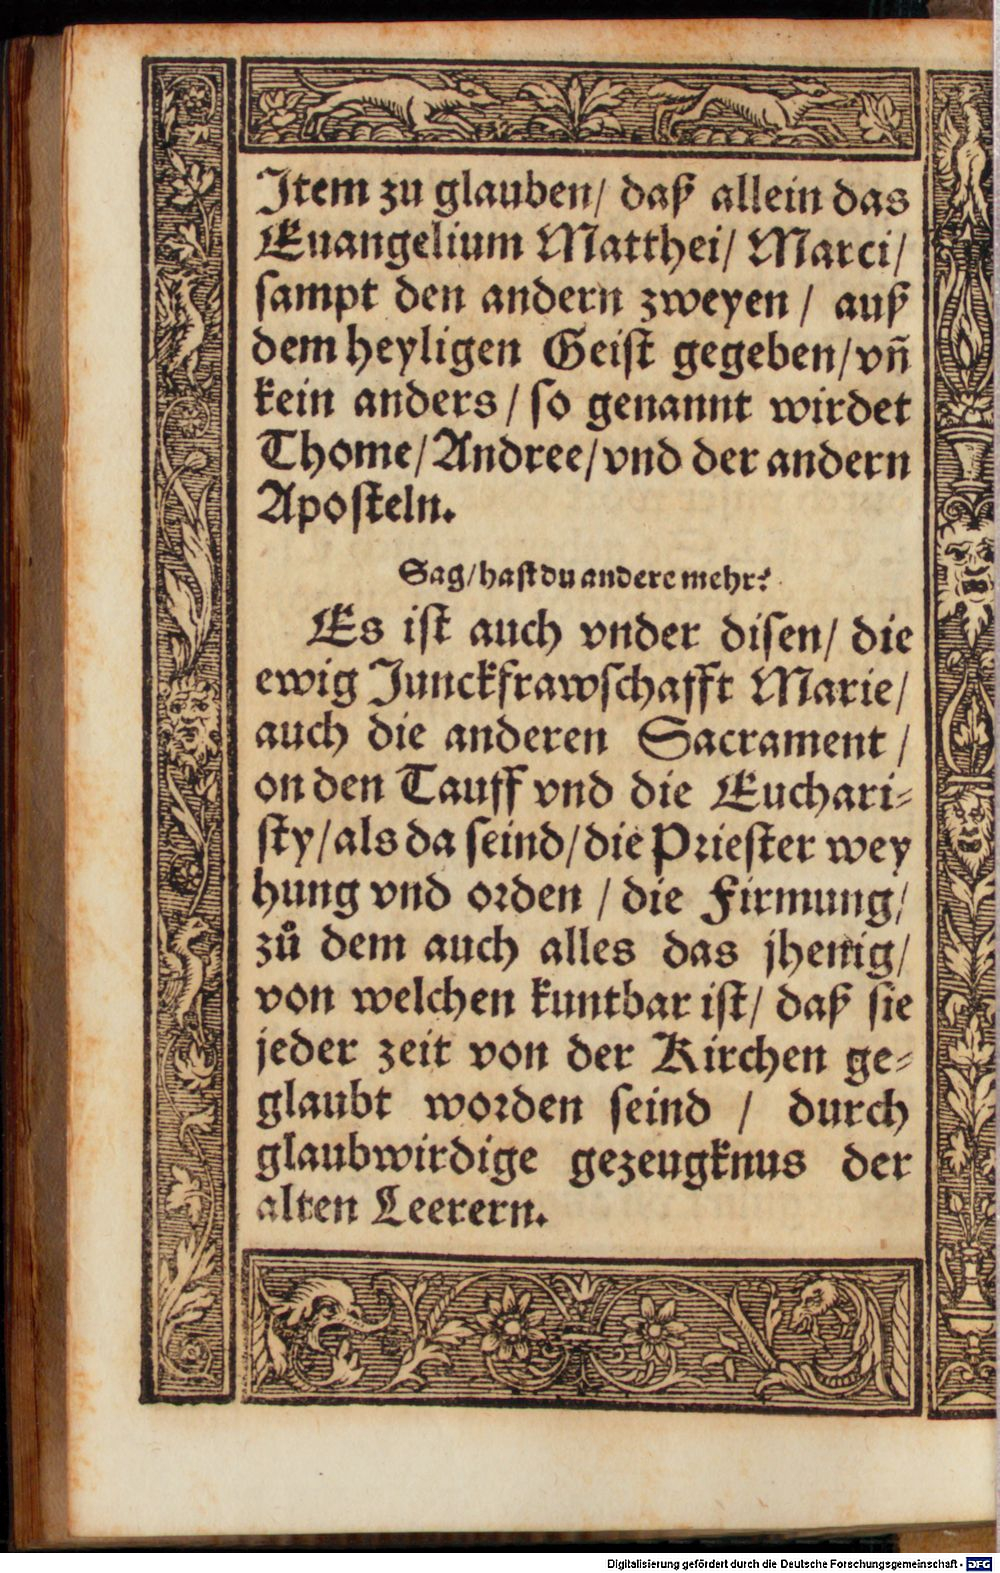 Item zu glauben/ daß allein das
Euangelium Matthei/ Marci/
sampt den andern zweyen / auß
dem heyligen Geist gegeben/ vñ
kein anders / so genannt wirdet
Thome/ Andree/ vnd der andern
Aposteln.
Sag/ hast du andere mehr?
Es ist auch vnder disen/ die
ewig Junckfrawschafft Marie/
auch die anderen Sacrament /
on den Tauff vnd die Euchari-
sty/ als da seind/ die Priester wey
hung vnd orden / die Firmung/
zů dem auch alles das jhenig/
von welchen kuntbar ist/ daß sie
jeder zeit von der Kirchen ge-
glaubt worden seind / durch
glaubwirdige gezeugknus der
alten Leerern.
Digitalisierung gefördert durch die Deutsche Forschungsgemeinschaft - DFG